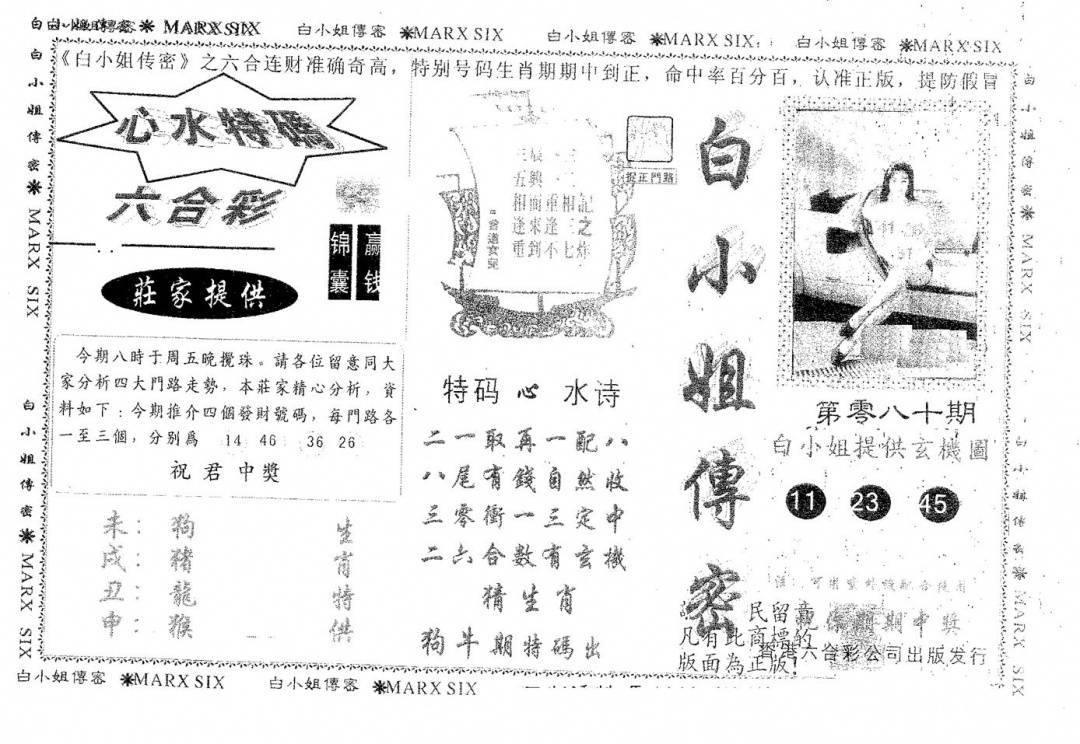 白小姐傳密 ❋ MARX SIX 白小姐傳密 ❋MARX SIX 白小姐傳密 ❋MARX SIX 白小姐傳密 ❋MARX SIX
《白小姐传密》之六合连财准确奇高，特别号码生肖期期中到正，命中率百分百，认准正版，提防假冒
白小姐傳密 ❋ MARX SIX
白小姐傳密 ❋ MARX SIX
心水特碼
六合彩
莊家提供
赢钱
锦囊
今期八時于周五晚攪珠。請各位留意同大
家分析四大門路走勢，本莊家精心分析，資
料如下：今期推介四個發財號碼，每門路各
一至三個，分别爲 14 46 36 26
祝君中獎
未：狗
戌：豬
丑：龍
申：猴
生肖特供
相面重相記
逢來逢三之
重到不七炸
曾道女兒
捉正門路
特码 心 水诗
二一取再一配八
八尾有錢自然收
三零衝一三定中
二六合數有玄機
猜生肖
狗牛期特碼出
白小姐傳密
民留意
凡有此商標的
版面為正版！
第零八十期
白小姐提供玄機圖
11 23 45
期中獎
香港六合彩公司出版发行
白小姐傳密 ❋ MARX SIX
白小姐傳密 ❋ MARX SIX
白小姐傳密 ❋MARX SIX 白小姐傳密 ❋MARX SIX